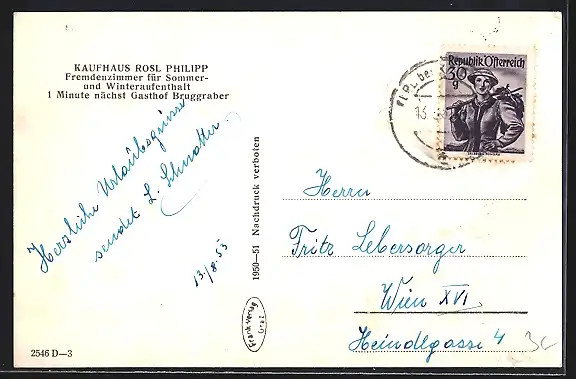 KAUFHAUS ROSL PHILIPP
Fremdenzimmer für Sommer-
und Winteraufenthalt
1 Minute nächst Gasthof Bruggraber
Herzliche Urlaubsgrüsse
sendet L.
13./8.53
2546 D—3
1950—51 Nachdruck verboten
Frank-verlag
Graz
Republik Österreich
30
g
13.
Herrn
Fritz Lebersorger
Wien XVI
Heindlgasse 4
3C